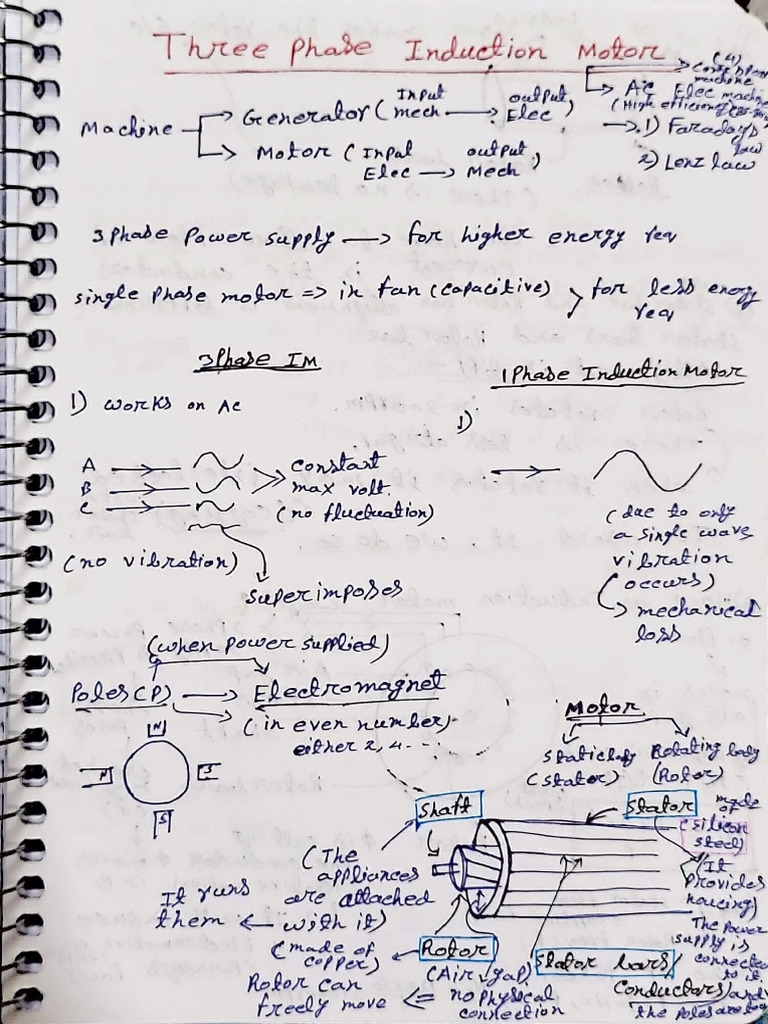 Three Phase Induction Motor
(4)
machine
Ac Elec machine
(High efficiency
Machine
Generator (Input mech → output Elec)
→ 1) Faraday's law
Motor (Input Elec → output Mech)
2) Lenz law
3 Phase Power supply → for higher energy req
single phase motor => in fan (capacitive) > for less energy
req
3 Phase IM
1 Phase Induction Motor
1) works on Ac
1)
A
B
C
constant
max volt.
(no fluctuation)
(due to only
a single wave
vibration
occurs)
→ mechanical
loss
(no vibration)
superimposes
(when power supplied)
Poles (P) → Electromagnet
(in even number,
either 2, 4 ...
N
N
S
S
Motor
Static body
(stator)
Rotating body
(Rotor)
Shaft
Stator
made
of
(silicon
steel)
(It
provides
housing)
(The
appliances
are attached
with it)
It runs
them ←
The power
supply is
connected
to it.
Rotor
(made of
copper)
(Air gap)
no physical
connection
Rotor can
freely move <=
Stator bars/
Conductors) and
the Poles are too